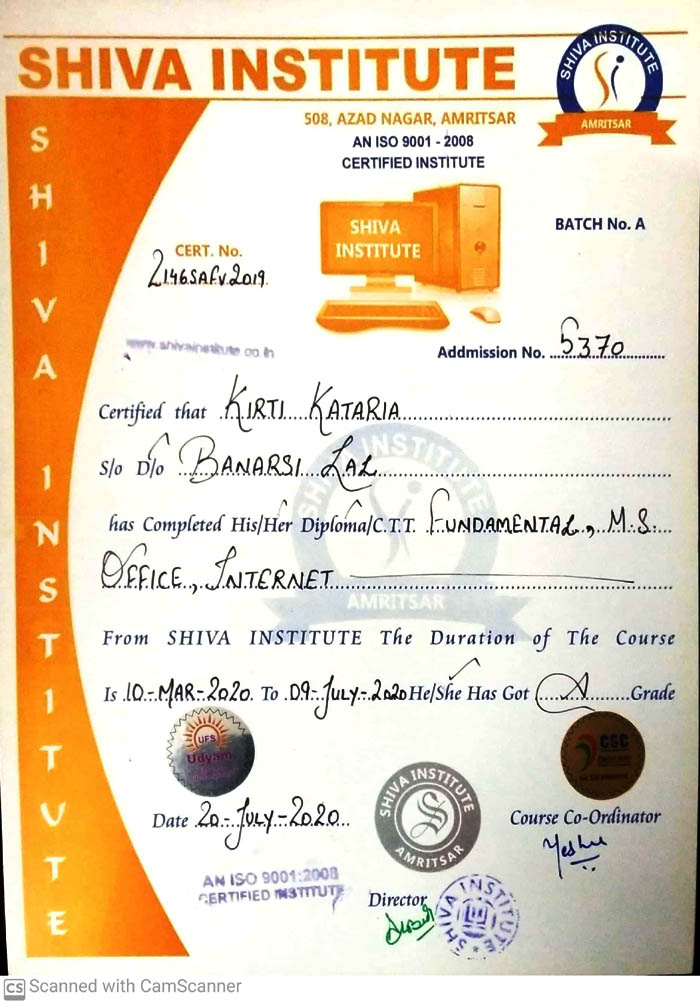 SHIVA INSTITUTE
SHIVA INSTITUTE
AMRITSAR
508, AZAD NAGAR, AMRITSAR
AN ISO 9001 - 2008
CERTIFIED INSTITUTE
SHIVA INSTITUTE
SHIVA
INSTITUTE
BATCH No. A
CERT. No.
2146SAFV2019
www.shivainstitute.co.in
Addmission No. 5370
Certified that KIRTI KATARIA
S/o D/o BANARSI LAL
has Completed His/Her Diploma/C.T.T. FUNDAMENTAL, M.S.
OFFICE, INTERNET
SHIVA INSTITUTE
AMRITSAR
From SHIVA INSTITUTE The Duration of The Course
Is 10-MAR-2020 To 09-JULY-2020 He/She Has Got A Grade
UFS
Udyam
CSC
Date 20-JULY-2020
SHIVA INSTITUTE
S
AMRITSAR
Course Co-Ordinator
AN ISO 9001:2008
CERTIFIED INSTITUTE
Director
SHIVA INSTITUTE
CS Scanned with CamScanner